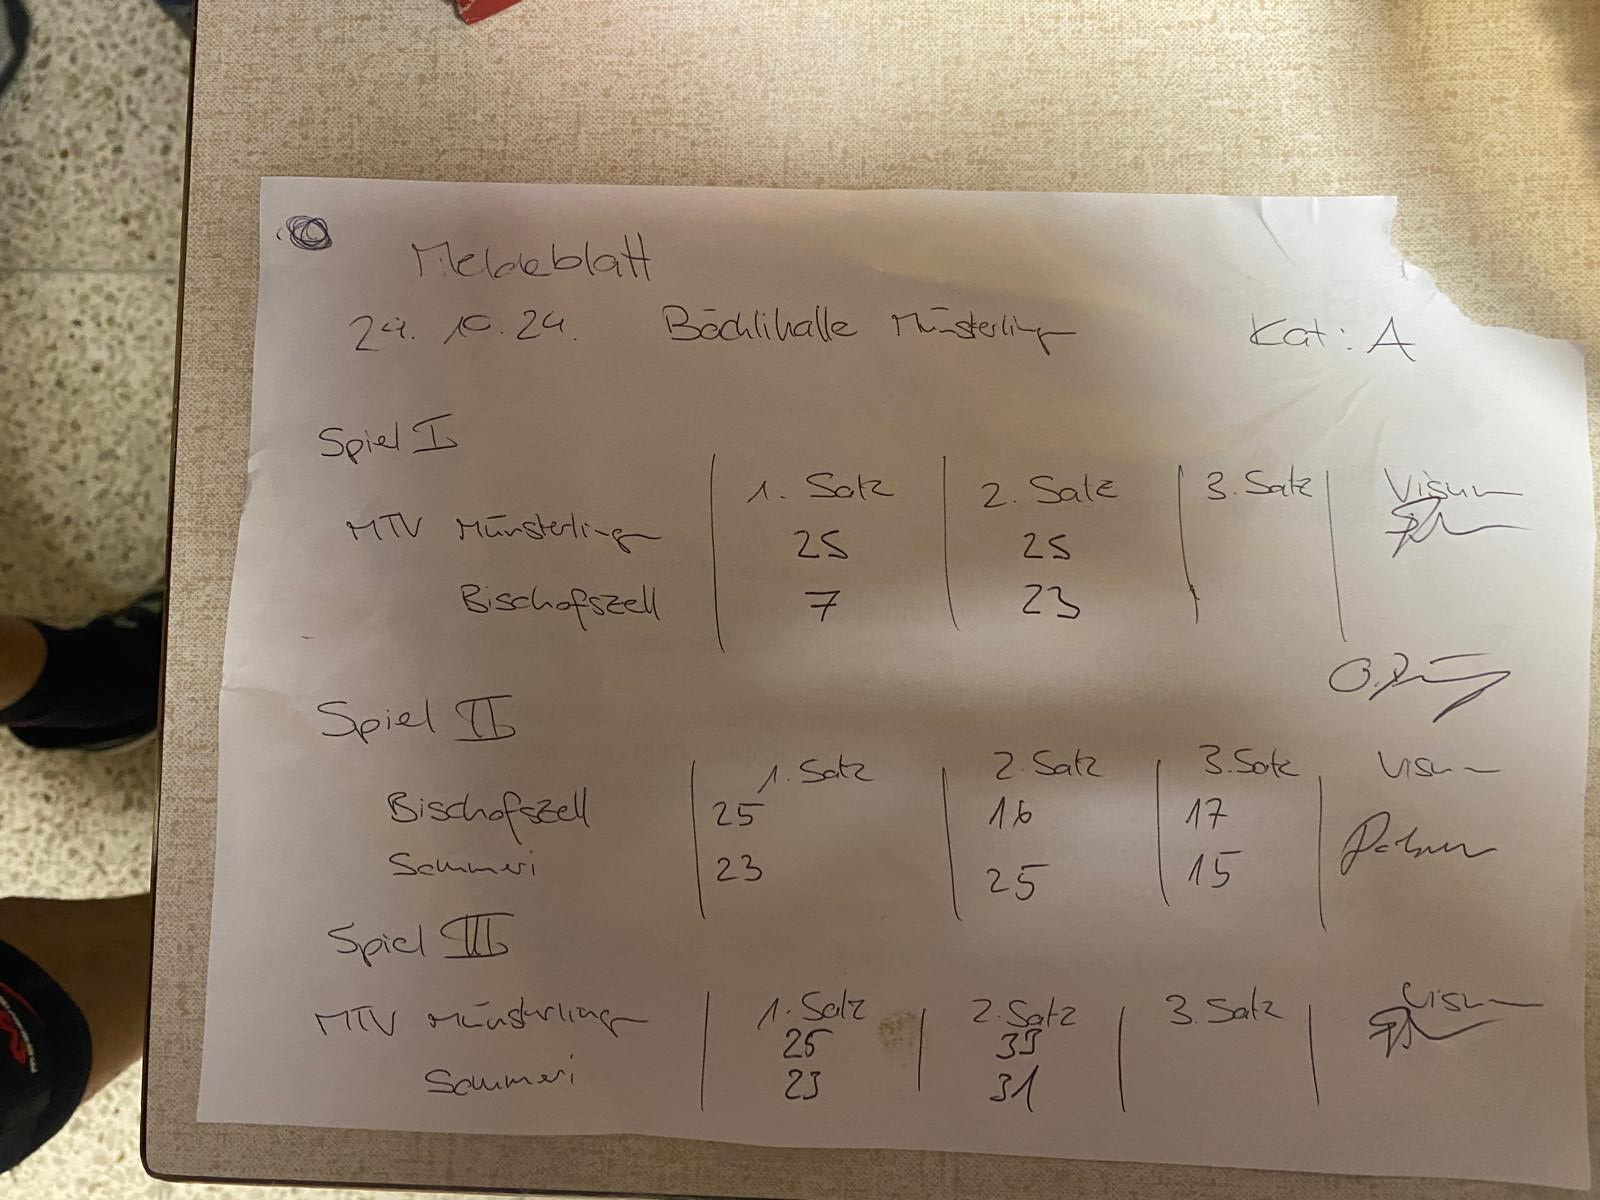 Meldeblatt
24.10.24. Bächlihalle Münsterlingen Kat: A
Spiel I
1. Satz 2. Satz 3. Satz Visum
MTV Münsterlingen 25 25
Bischofszell 7 23
Spiel II
1. Satz 2. Satz 3. Satz Visum
Bischofszell 25 16 17
Sommeri 23 25 15
Spiel III
1. Satz 2. Satz 3. Satz Visum
MTV Münsterlingen 25 33
Sommeri 23 31